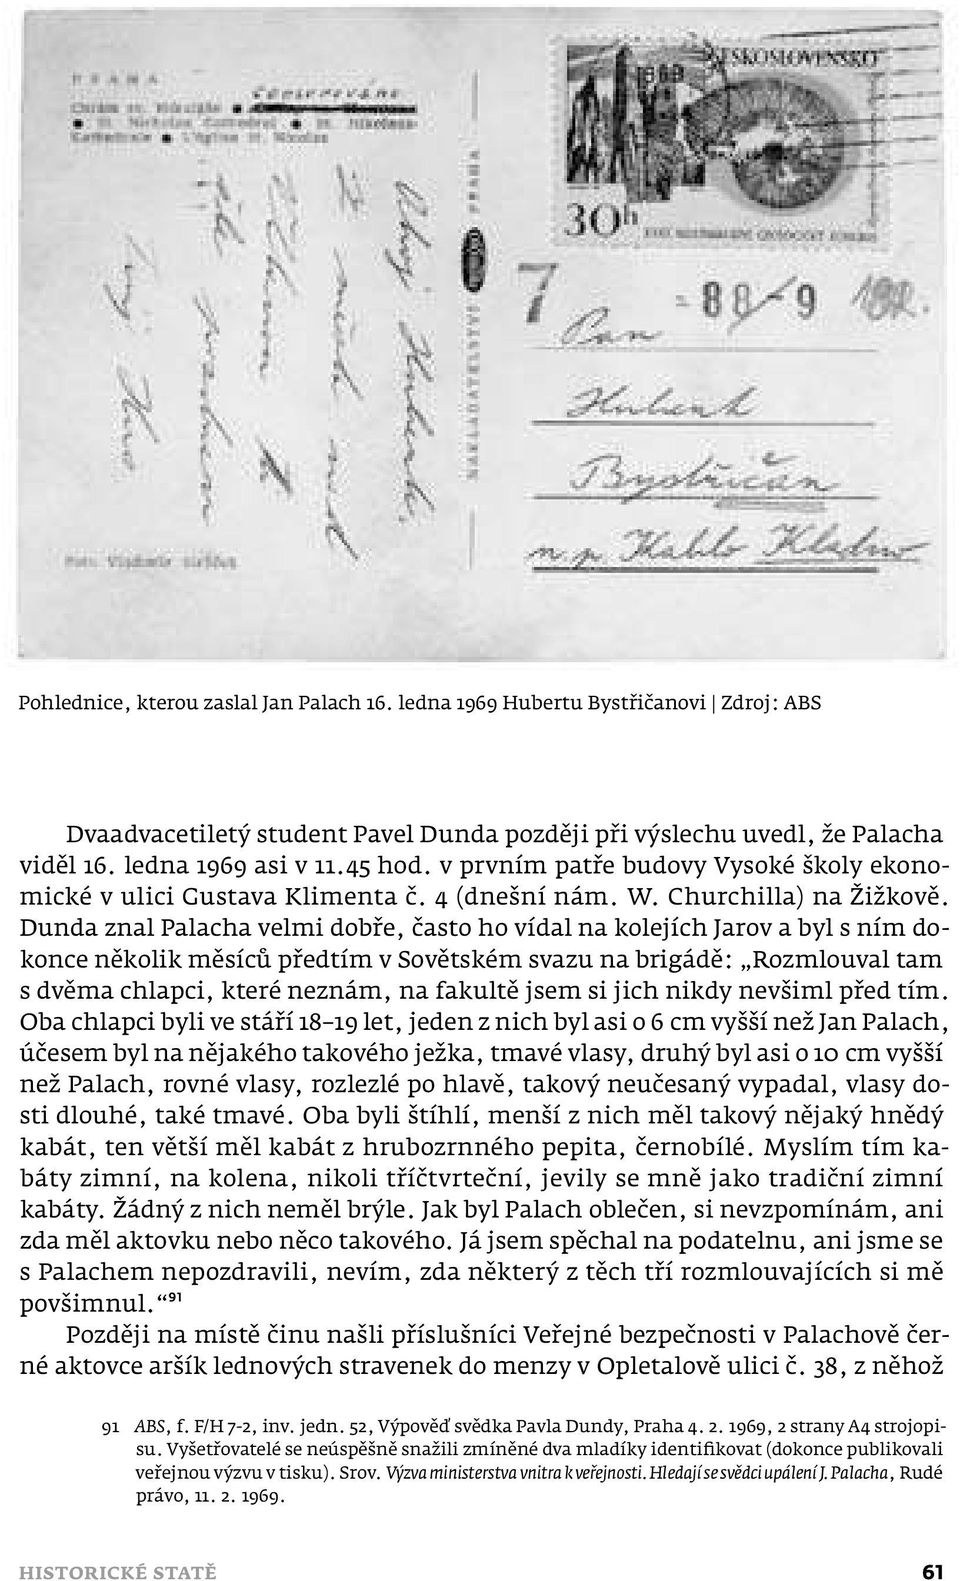 PRAHA
Chrám sv. Mikuláše
St. Nicholas Cathedral • St. Nikolaus-
Kathedrale • L'église St. Nicolas
ČESKOSLOVENSKO
30h
NAKLADATELSTVÍ PRAHA
7
Pan
Hubert
Bystřičan
n.p. Kablo Kladno
Ahoj Huberte.
Foto: Vladimír
Pohlednice, kterou zaslal Jan Palach 16. ledna 1969 Hubertu Bystřičanovi | Zdroj: ABS
Dvaadvacetiletý student Pavel Dunda později při výslechu uvedl, že Palacha
viděl 16. ledna 1969 asi v 11.45 hod. v prvním patře budovy Vysoké školy ekono-
mické v ulici Gustava Klimenta č. 4 (dnešní nám. W. Churchilla) na Žižkově.
Dunda znal Palacha velmi dobře, často ho vídal na kolejích Jarov a byl s ním do-
konce několik měsíců předtím v Sovětském svazu na brigádě: „Rozmlouval tam
s dvěma chlapci, které neznám, na fakultě jsem si jich nikdy nevšiml před tím.
Oba chlapci byli ve stáří 18–19 let, jeden z nich byl asi o 6 cm vyšší než Jan Palach,
účesem byl na nějakého takového ježka, tmavé vlasy, druhý byl asi o 10 cm vyšší
než Palach, rovné vlasy, rozlezlé po hlavě, takový neučesaný vypadal, vlasy do-
sti dlouhé, také tmavé. Oba byli štíhlí, menší z nich měl takový nějaký hnědý
kabát, ten větší měl kabát z hrubozrnného pepita, černobílé. Myslím tím ka-
báty zimní, na kolena, nikoli tříčtvrteční, jevily se mně jako tradiční zimní
kabáty. Žádný z nich neměl brýle. Jak byl Palach oblečen, si nevzpomínám, ani
zda měl aktovku nebo něco takového. Já jsem spěchal na podatelnu, ani jsme se
s Palachem nepozdravili, nevím, zda některý z těch tří rozmlouvajících si mě
povšimnul.“91
Později na místě činu našli příslušníci Veřejné bezpečnosti v Palachově čer-
né aktovce aršík lednových stravenek do menzy v Opletalově ulici č. 38, z něhož
91 ABS, f. F/H 7-2, inv. jedn. 52, Výpověď svědka Pavla Dundy, Praha 4. 2. 1969, 2 strany A4 strojopi-
su. Vyšetřovatelé se neúspěšně snažili zmíněné dva mladíky identifikovat (dokonce publikovali
veřejnou výzvu v tisku). Srov. Výzva ministerstva vnitra k veřejnosti. Hledají se svědci upálení J. Palacha, Rudé
právo, 11. 2. 1969.
HISTORICKÉ STATĚ 61